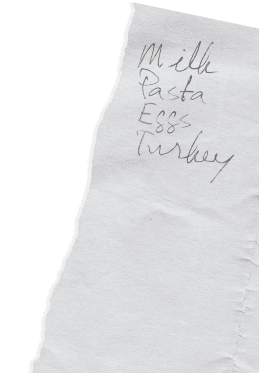 Milk
Pasta
Eggs
Turkey